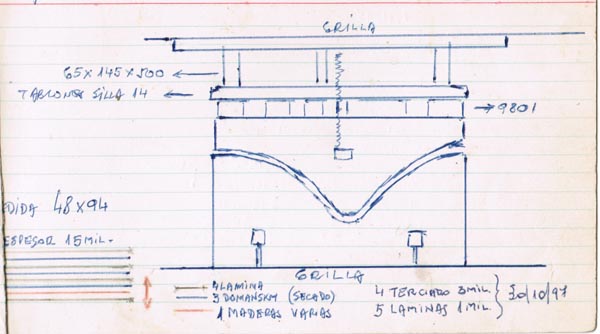 GRILLA
65 X 145 X 500
TABLONES SILLA 14
9801
EDIDA 48 X 94
ESPESOR 15 MIL.
GRILLA
4 LAMINA
3 DOMANSKM (SECADO)
1 MADERAS VARIAS
4 TERCIADO 3 MIL.
5 LAMINAS 1 MIL.
20/10/97